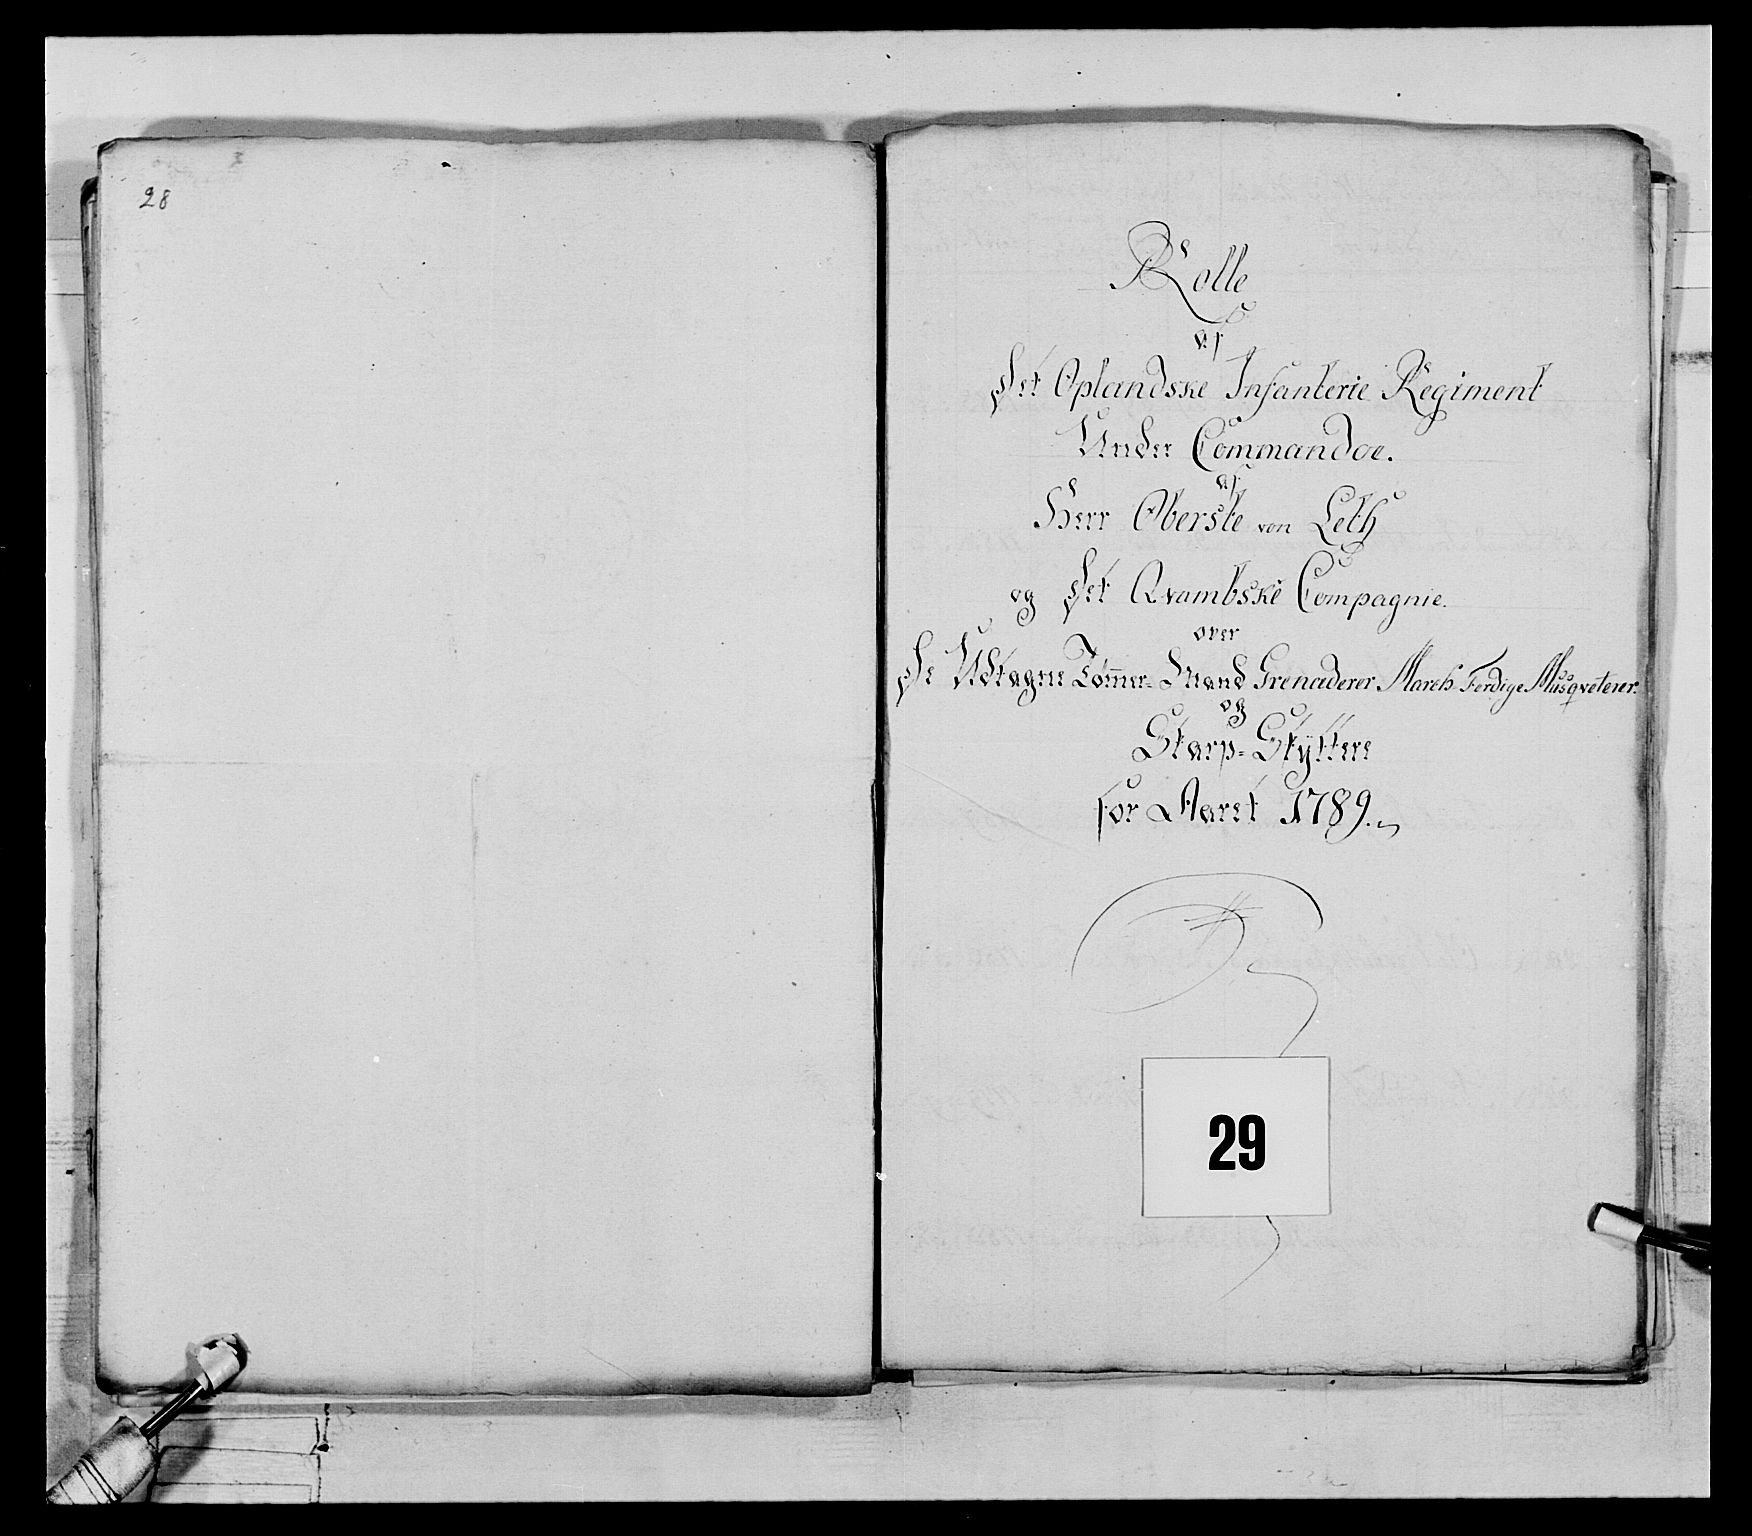 28
Rolle
af
Det Oplandske Infanterie Regiment
Under Commandoe.
af
Herr Oberste von Leth
og Det Qvambske Compagnie.
over
De Udtagne Tømer-Mænd Grenaderer March Ferdige Musqveterer
og
Skarp-Skyttere
for Aaret 1789.
29